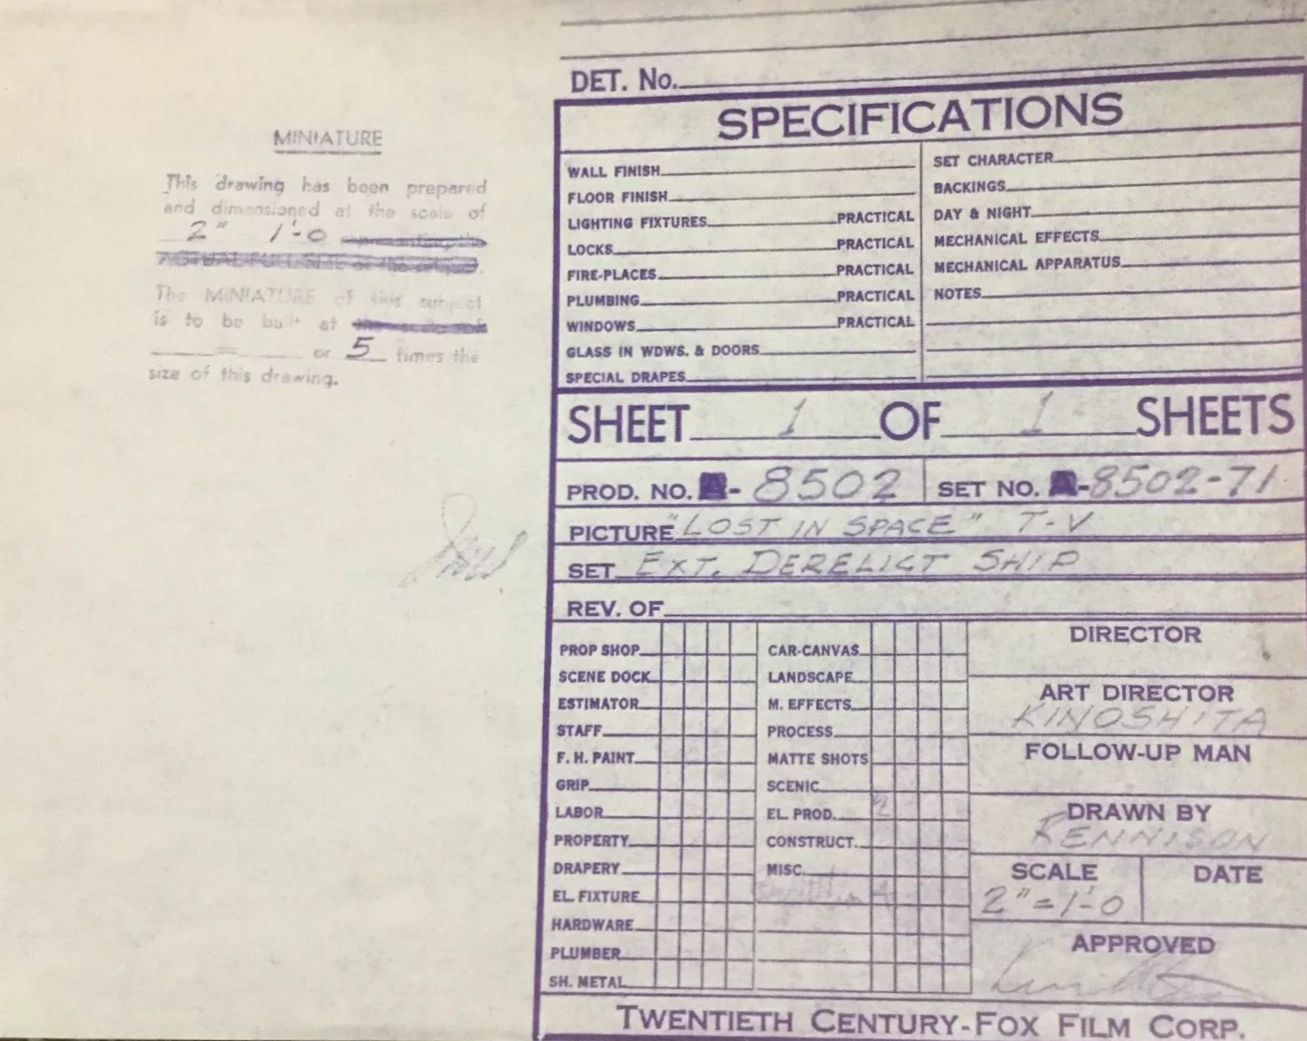 MINIATURE
This drawing has been prepared
and dimensioned at the scale of
2" 1'-0 representing the
ACTUAL FULL SIZE of the subject.
The MINIATURE of this subject
is to be built at the scale of
= or 5 times the
size of this drawing.
DET. No.
SPECIFICATIONS
WALL FINISH
FLOOR FINISH
LIGHTING FIXTURES PRACTICAL
LOCKS PRACTICAL
FIRE-PLACES PRACTICAL
PLUMBING PRACTICAL
WINDOWS PRACTICAL
GLASS IN WDWS. & DOORS
SPECIAL DRAPES
SET CHARACTER
BACKINGS
DAY & NIGHT
MECHANICAL EFFECTS
MECHANICAL APPARATUS
NOTES
SHEET 1 OF 1 SHEETS
PROD. NO. A- 8502 SET NO. A-8502-71
PICTURE "LOST IN SPACE" T-V
SET EXT. DERELICT SHIP
REV. OF
PROP SHOP
SCENE DOCK
ESTIMATOR
STAFF
F. H. PAINT
GRIP
LABOR
PROPERTY
DRAPERY
EL. FIXTURE
HARDWARE
PLUMBER
SH. METAL
CAR-CANVAS
LANDSCAPE
M. EFFECTS
PROCESS
MATTE SHOTS
SCENIC
EL. PROD. 2
CONSTRUCT.
MISC.
DIRECTOR
ART DIRECTOR
KINOSHITA
FOLLOW-UP MAN
DRAWN BY
KENNISON
SCALE
2"=1'-0
DATE
APPROVED
TWENTIETH CENTURY-FOX FILM CORP.